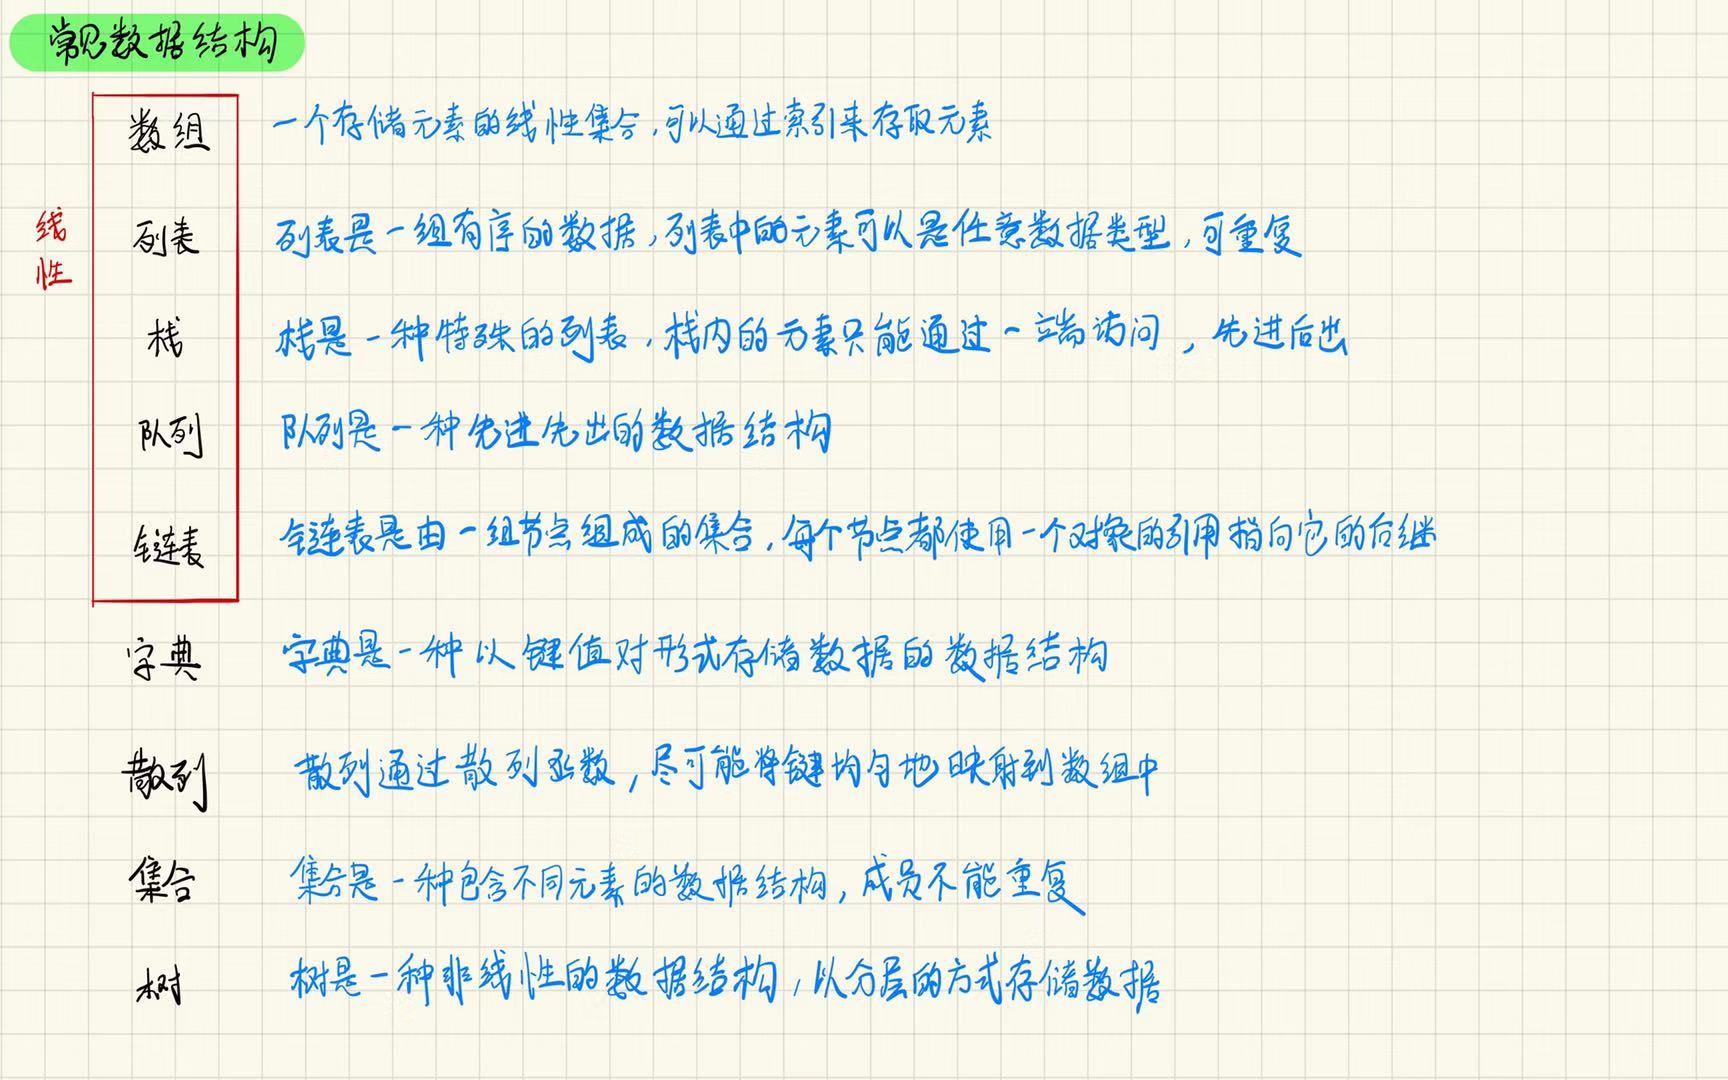 常见数据结构
线性
数组 一个存储元素的线性集合,可以通过索引来存取元素
列表 列表是一组有序的数据,列表中的元素可以是任意数据类型,可重复
栈 栈是一种特殊的列表,栈内的元素只能通过一端访问,先进后出
队列 队列是一种先进先出的数据结构
链表 链表是由一组节点组成的集合,每个节点都使用一个对象的引用指向它的后继
字典 字典是一种以键值对形式存储数据的数据结构
散列 散列通过散列函数,尽可能将键均匀地映射到数组中
集合 集合是一种包含不同元素的数据结构,成员不能重复
树 树是一种非线性的数据结构,以分层的方式存储数据